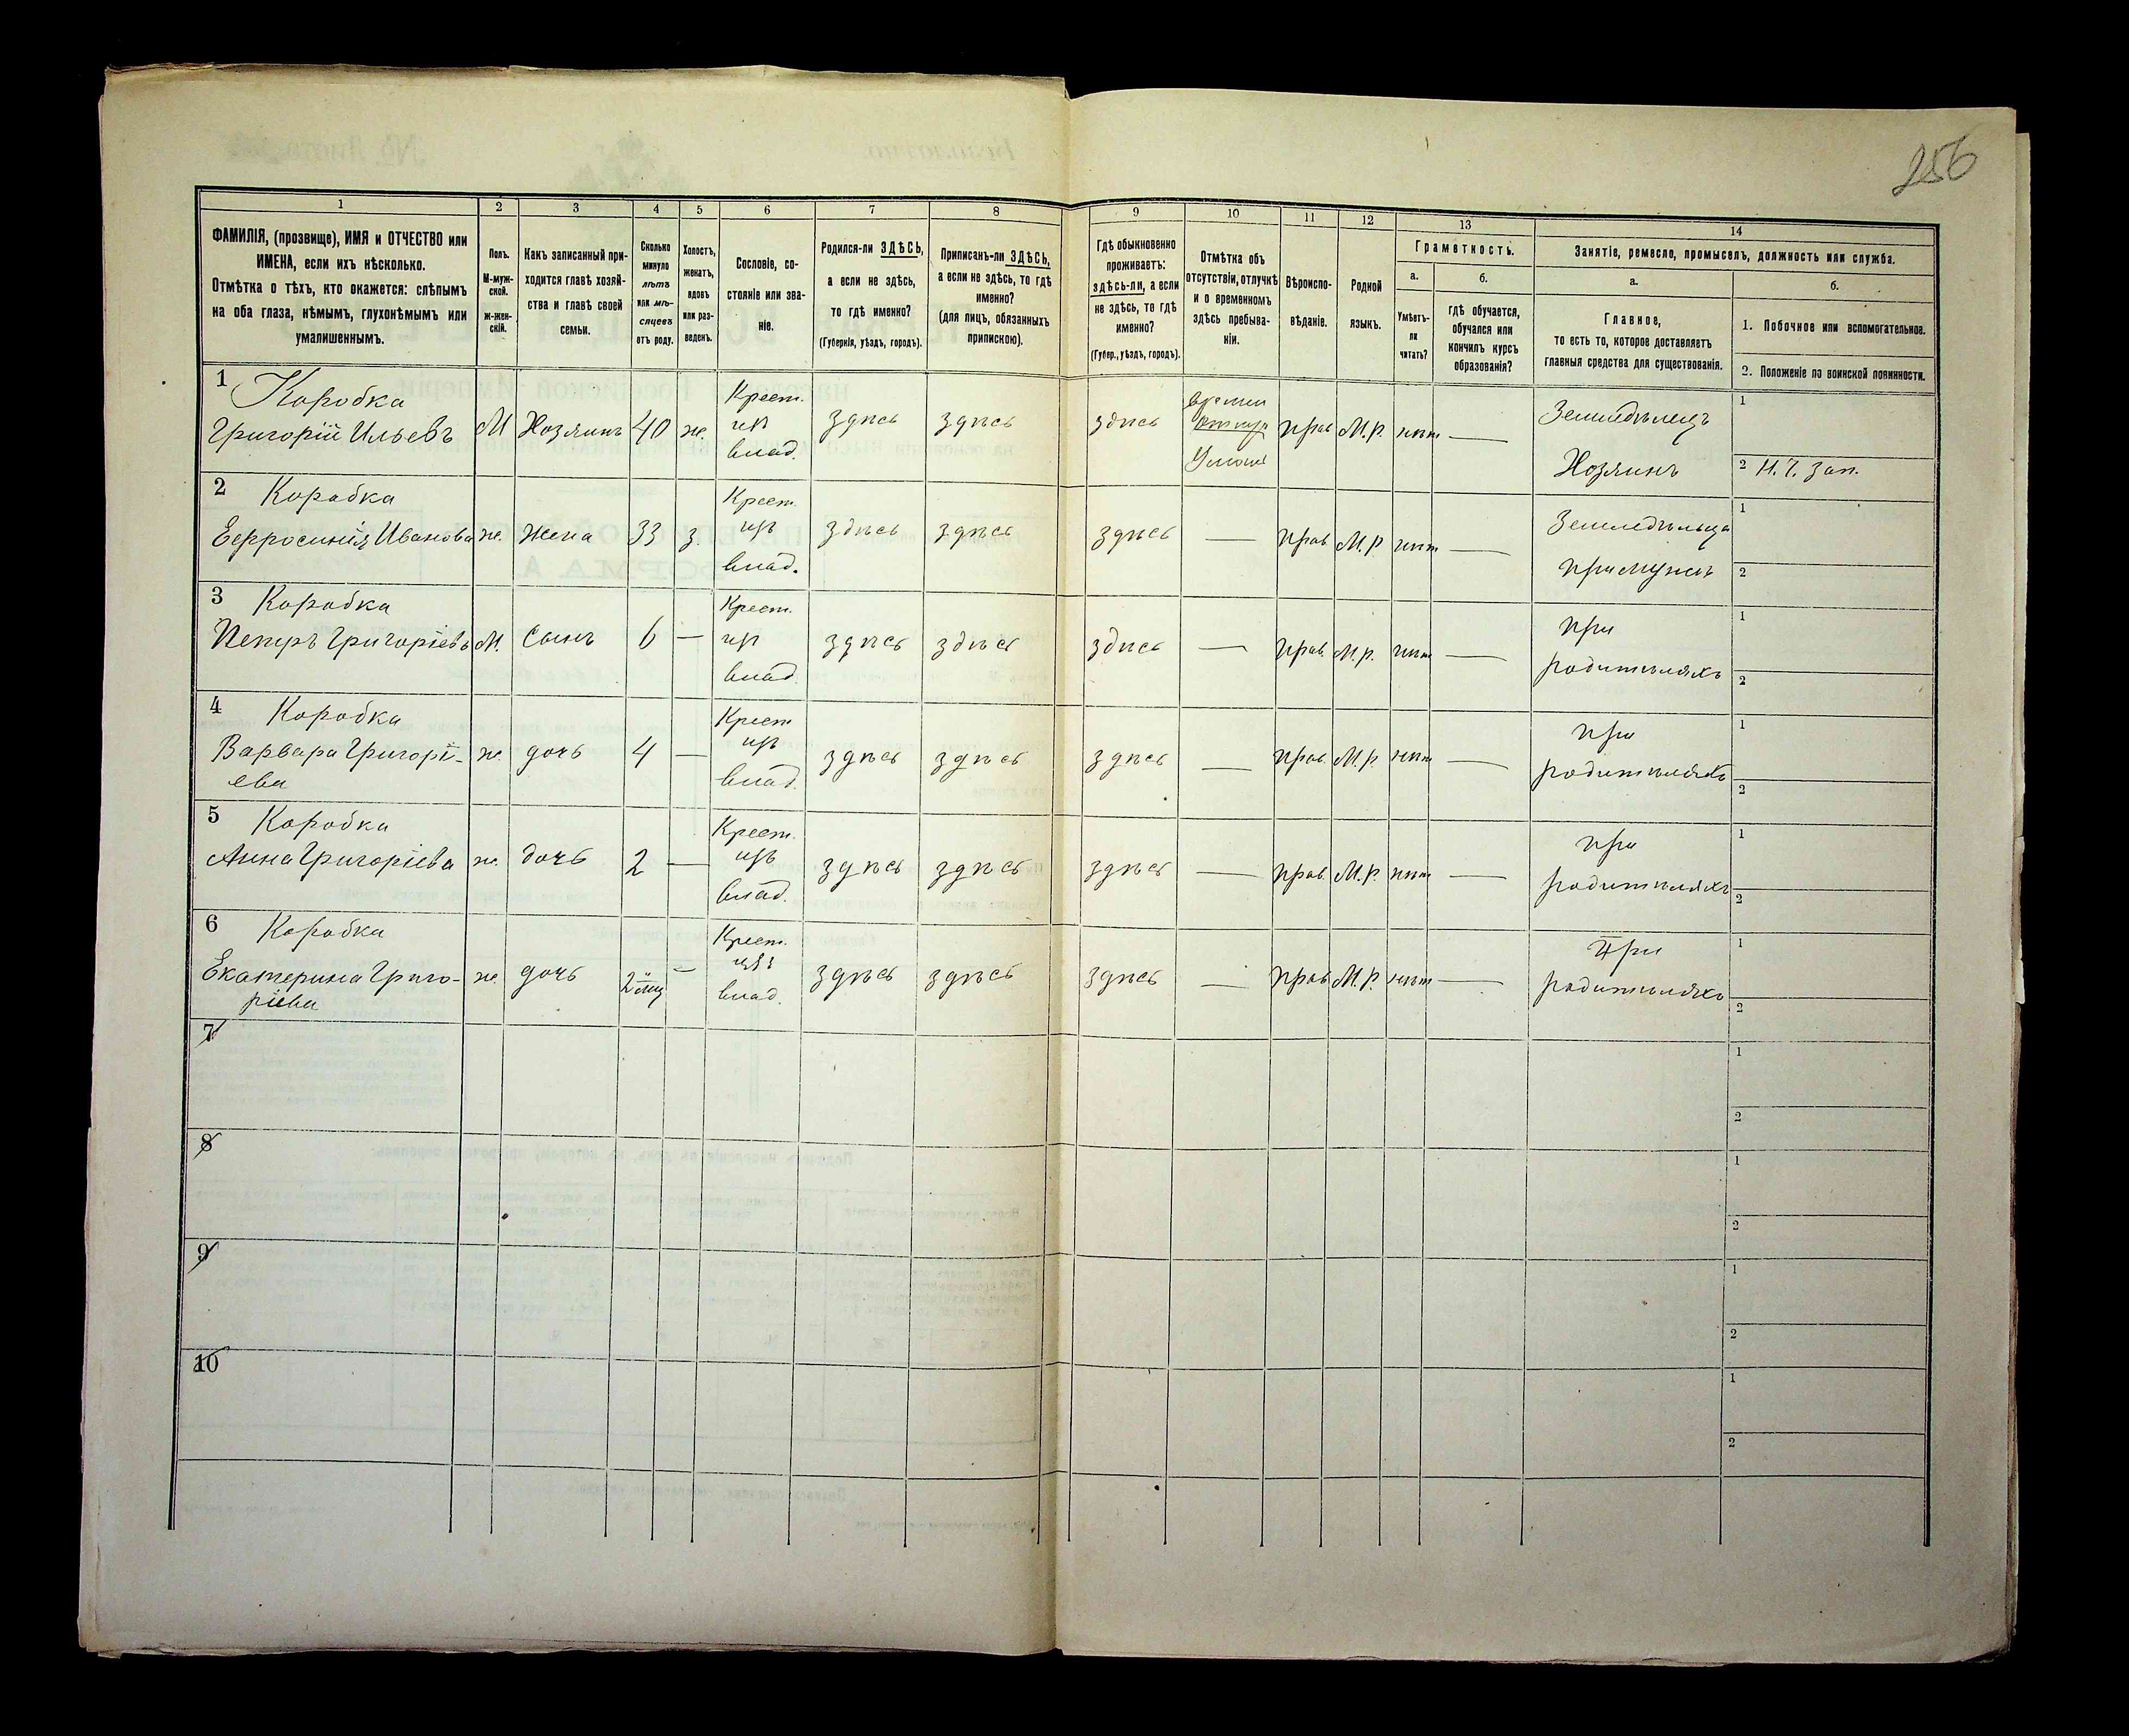 256
1 2 3 4 5 6 7 8 9 10 11 12 13 14
ФАМИЛІЯ, (прозвище), ИМЯ и ОТЧЕСТВО или
ИМЕНА, если ихъ нѣсколько.
Отмѣтка о тѣхъ, кто окажется: слѣпымъ
на оба глаза, нѣмымъ, глухонѣмымъ или
умалишеннымъ.
Полъ.
М-муж-
ской.
ж-жен-
скій.
Какъ записанный при-
ходится главѣ хозяй-
ства и главѣ своей
семьи.
Сколько
минуло
лѣтъ
или мѣ-
сяцевъ
отъ роду.
Холостъ,
женатъ,
вдовъ
или раз-
веденъ.
Сословіе, со-
стояніе или зва-
ніе.
Родился-ли ЗДѢСЬ,
а если не здѣсь,
то гдѣ именно?
(Губернія, уѣздъ, городъ).
Приписанъ-ли ЗДѢСЬ,
а если не здѣсь, то гдѣ
именно?
(для лицъ, обязанныхъ
припискою).
Гдѣ обыкновенно
проживаетъ:
здѣсь-ли, а если
не здѣсь, то гдѣ
именно?
(Губер., уѣздъ, городъ).
Отмѣтка объ
отсутствіи, отлучкѣ
и о временномъ
здѣсь пребыва-
ніи.
Вѣроиспо-
вѣданіе.
Родной
языкъ.
Грамотность.
а.
Умѣетъ-
ли
читать?
б.
Гдѣ обучается,
обучался или
кончилъ курсъ
образованія?
Занятіе, ремесло, промыселъ, должность или служба.
а.
Главное,
то есть то, которое доставляетъ
главныя средства для существованія.
б.
1. Побочное или вспомогательное.
2. Положеніе по воинской повинности.
1 Коробка
Григорій Ильевъ М Хозяинъ 40 ж. Крест. из влад. здѣсь здѣсь здѣсь прав М.р. нѣт — Земледѣлецъ
Хозяинъ
1
2 Н.Ч. зап.
2 Коробка
Ефросинія Иванова ж. жена 33 з. Крест. изъ влад. здѣсь здѣсь здѣсь — прав М.р нѣт — Земледѣльца
при мужѣ
1
2
3 Коробка
Петръ Григоріевъ М. Сынъ 6 — Крест. из влад. здѣсь здѣсь здѣсь — прав. М.р. нѣт — при
родителяхъ
1
2
4 Коробка
Варвара Григорі-
ева ж. дочь 4 — Крест изъ влад. здѣсь здѣсь здѣсь — прав. М.р. нѣт — при
родителяхъ
1
2
5 Коробка
Анна Григоріева ж. дочь 2 — Крест. изъ влад. здѣсь здѣсь здѣсь — прав. М.р. нѣт — при
родителяхъ
1
2
6 Коробка
Екатерина Григо-
ріева ж. дочь 2 мц — Крест. изъ влад. здѣсь здѣсь здѣсь — прав М.р. нѣт — при
родителяхъ
1
2
7
1
2
8
1
2
9
1
2
10
1
2